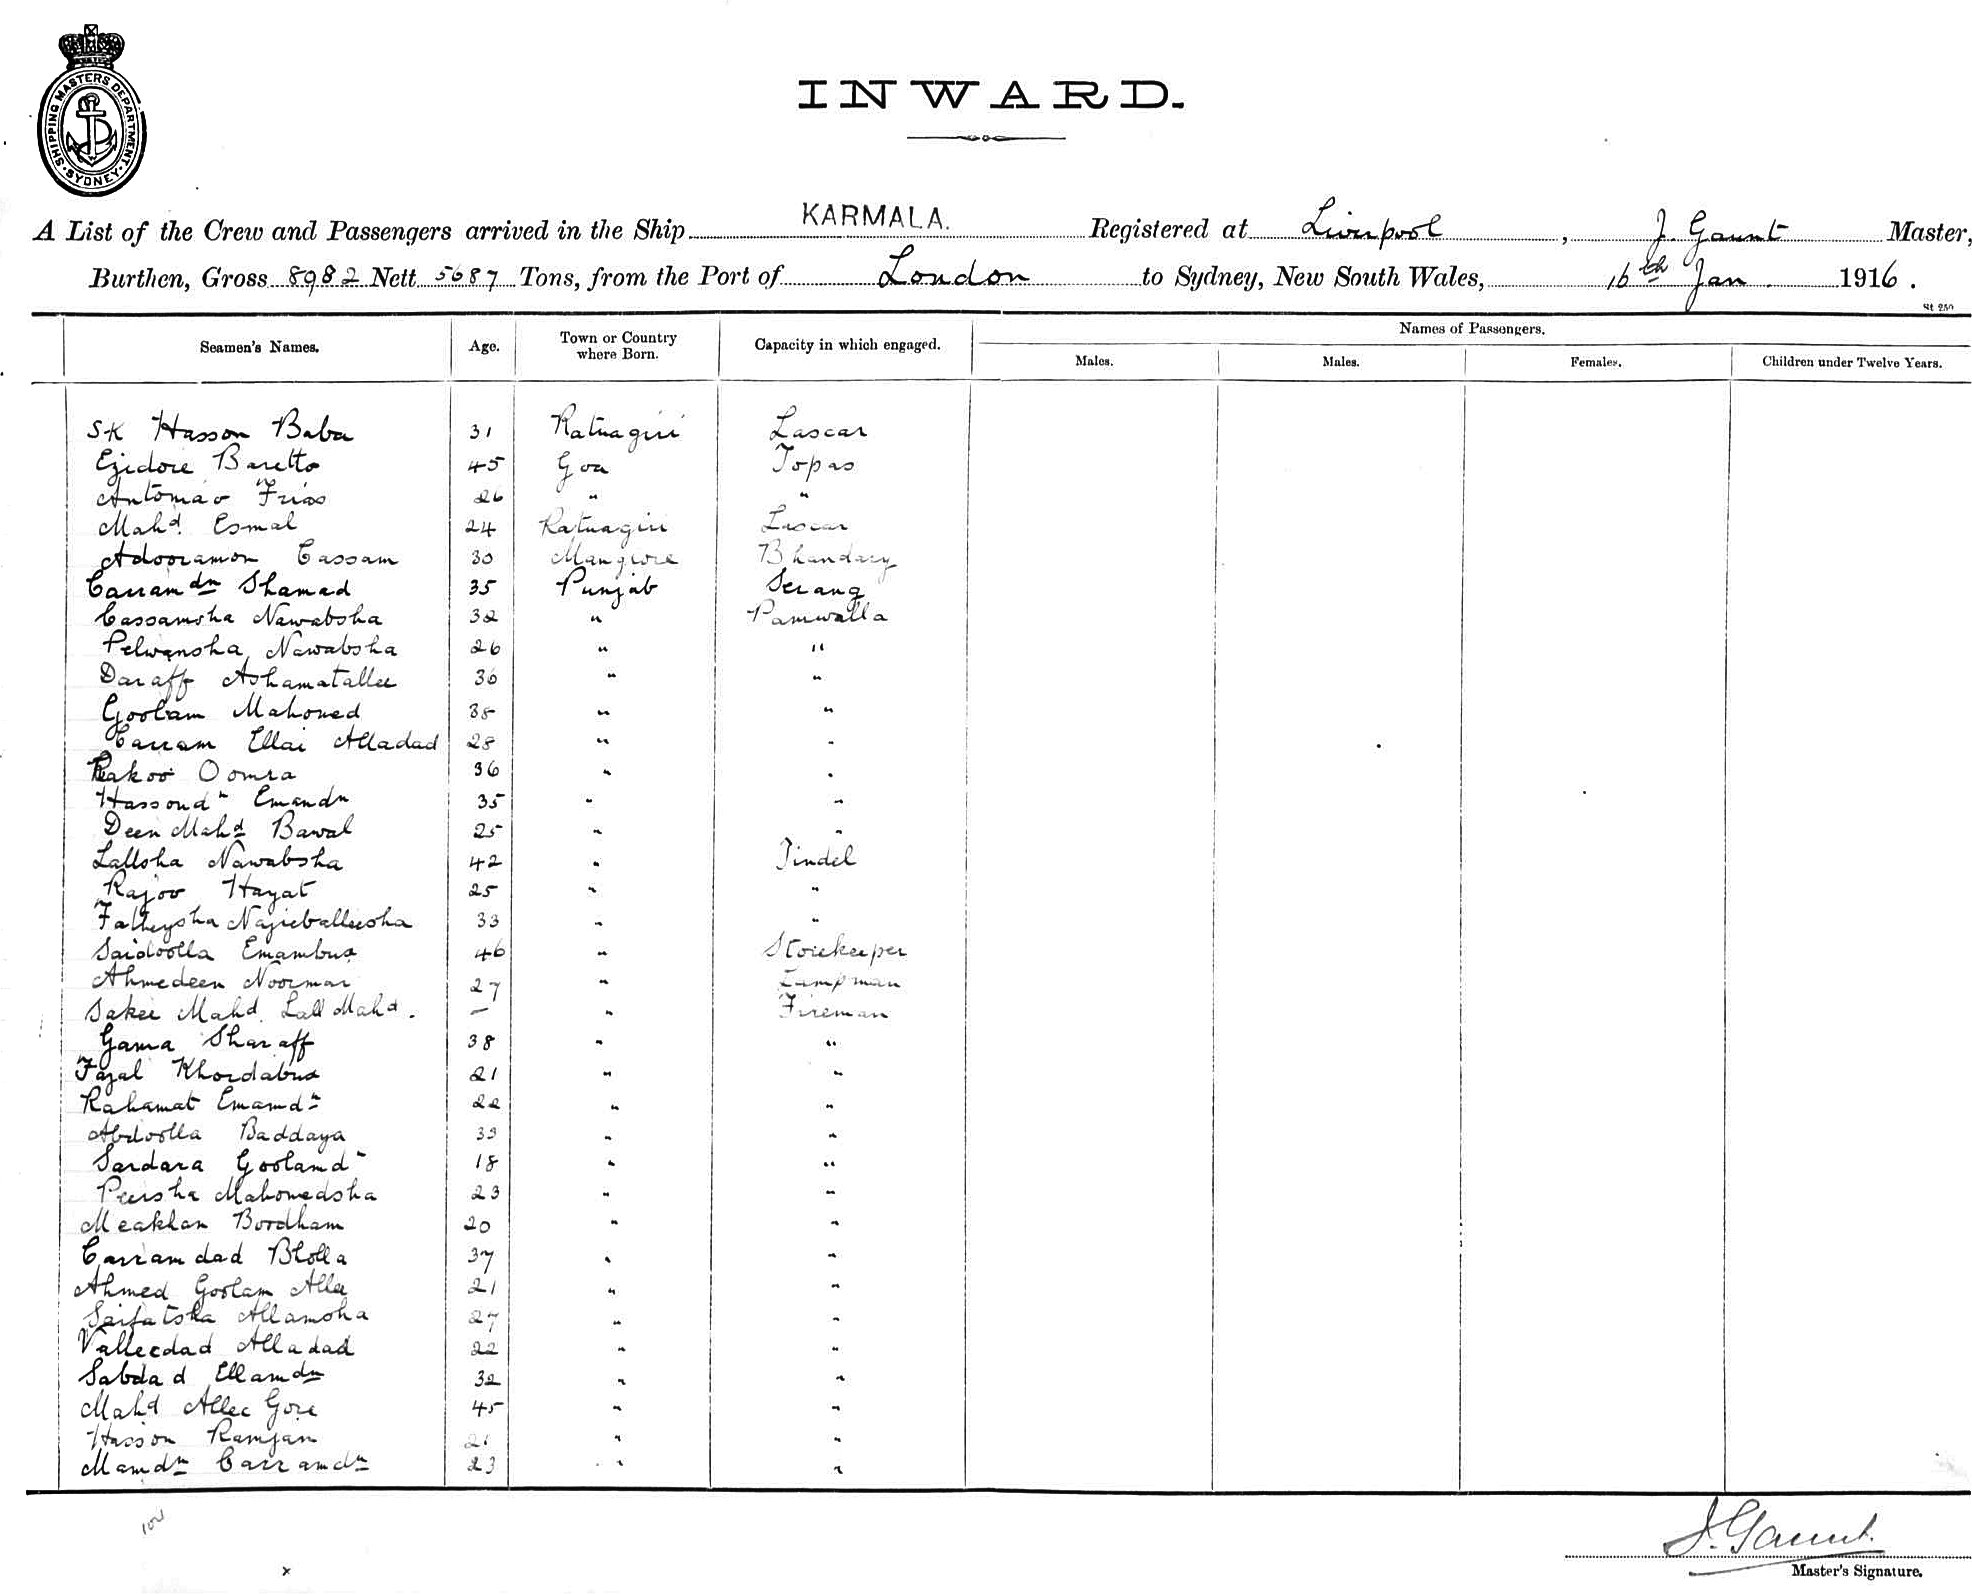 SHIPPING MASTERS DEPARTMENT. SYDNEY
INWARD.
A List of the Crew and Passengers arrived in the Ship KARMALA. Registered at Liverpool, J. Gaunt Master,
Burthen, Gross 8982 Nett 5687 Tons, from the Port of London to Sydney, New South Wales, 16th Jan. 1916.
St 250
Seamen's Names. Age. Town or Country where Born. Capacity in which engaged. Names of Passengers.
Males. Males. Females. Children under Twelve Years.
SK Hasson Baba 31 Ratnagiri Lascar
Ezidore Baretto 45 Goa Topas
Antomao Frias 26 " "
Mahd. Esmal 24 Ratnagiri Lascar
Adooramon Cassam 30 Mangrore Bhandary
Carramdn Shamad 35 Punjab Serang
Cassamsha Nawabsha 32 " Paniwalla
Pelwansha Nawabsha 26 " "
Daraff Ashamatallee 36 " "
Goolam Mahomed 38 " "
Carram Ellai Alladad 28 " "
Oomra 36 " "
Hassondn Emamdn 35 " "
Deen Mahd Bawal 25 " "
Lallsha Nawabsha 42 " Tindel
Rajoo Hayat 25 " "
Fatheysha Najieballeesha 33 " "
Saidoolla Emambux 46 " Storekeeper
Ahmedeen Noormai 27 " Lampman
Sakee Mahd. Lall Mahd. — " Fireman
Gama Sharaff 38 " "
Fazal Khordabux 21 " "
Rahamat Emamdn 22 " "
Abdoolla Baddaya 33 " "
Sardara Goolamdn 18 " "
Peersha Mahomedsha 23 " "
Meakhan Bordham 20 " "
Carramdad Blolla 37 " "
Ahmed Goolam Allee 21 " "
Saifatsha Allamsha 27 " "
Valleedad Alladad 22 " "
Sabdad Ellamdn 32 " "
Mahd Allee Gore 45 " "
Hasson Ramjan 21 " "
Mamdn Carramdn 23 " "
J. Gaunt.
Master's Signature.